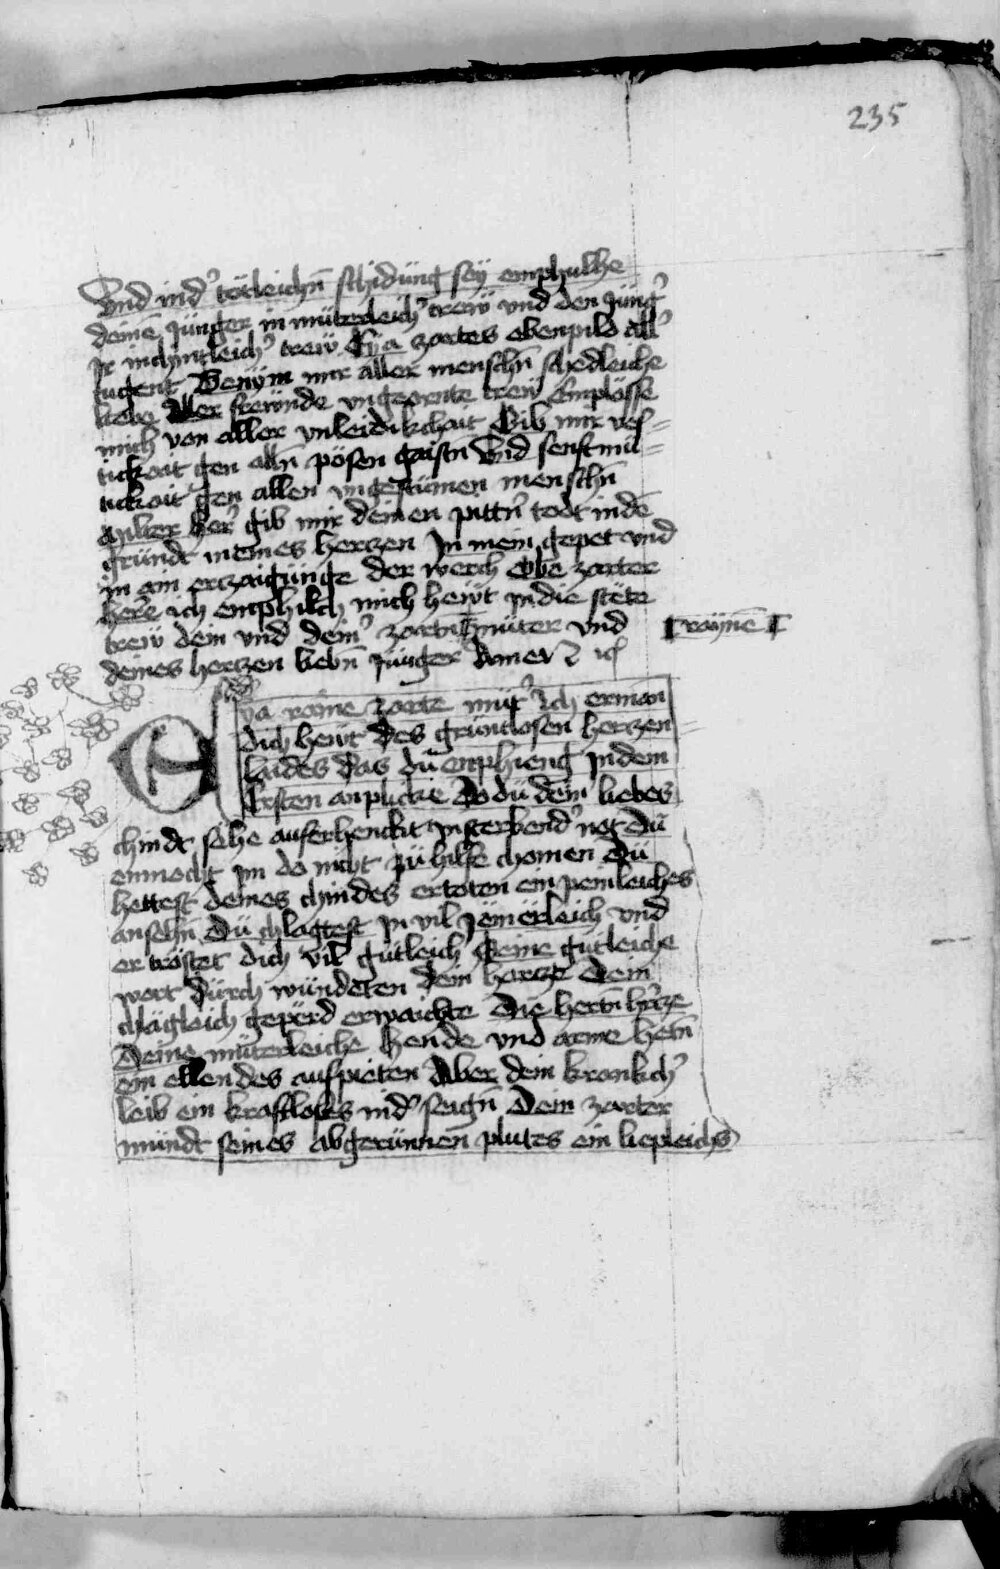 235
Vnd ind' totleichñ schidung sey emphulhe
deinē Junger in muterleich' trew vnd den Jung'
Ir in chintleich' trew Eya zartes ebenpild all'
tugent Benÿm mir aller menschñ schedleiche
liebe Aller frewnde vngeornte trew Emplösse
mich von aller vnleidikchait Gib mir ves=
tickait gen allñ pösen gaistñ Vnd senftmü=
tickait gen allen vngestümen menschñ
her' gib mir deinen pittñ tod in dē
gründt meines hertzen In mein gepet vnd
in ain erczaigünge der werch Obe zarter
here ich emphilch mich hewt in die stëte
trew dein vnd dein' zartñ müter vnd
⸢raÿnē⸣
deines hertzen liebñ Junger Amen
Eya raine zarte mut' Ich erman
dich hewt des gruntlosen hertzen
laides das dü emphieng in dem
Ersten anplicke Do dü dein liebes
chindt sehe auferhenckt in sterbend' not Dü
enmocht im do nicht zü hilfe chomen Dü
hettest deines chindes ertoten ein peinleiches
ansehñ Dü chlagtest in vil Jëmërleich vnd
er tröstet dich vil gütleich Seine gütleiche
wort dürch wündeten dein hertze Dein
chlägleich gepërd erwaichte Die hertñ h'tze
Deine müterleiche Hende vnd arme hetñ
ein ellendes aufpieten Aber dein kranckch'
leib ein kraftloses nid' seigñ Dein zarter
mündt seines abgerünnen plutes ein liepleichs